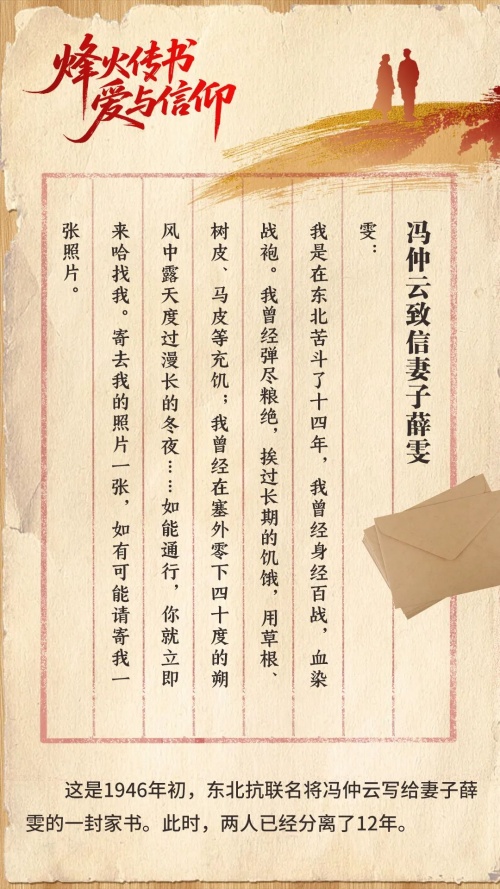 烽火传书
爱与信仰
冯仲云致信妻子薛雯
雯：
我是在东北苦斗了十四年，我曾经身经百战，血染
战袍。我曾经弹尽粮绝，挨过长期的饥饿，用草根、
树皮、马皮等充饥；我曾经在塞外零下四十度的朔
风中露天度过漫长的冬夜……如能通行，你就立即
来哈找我。寄去我的照片一张，如有可能请寄我一
张照片。
这是1946年初，东北抗联名将冯仲云写给妻子薛
雯的一封家书。此时，两人已经分离了12年。